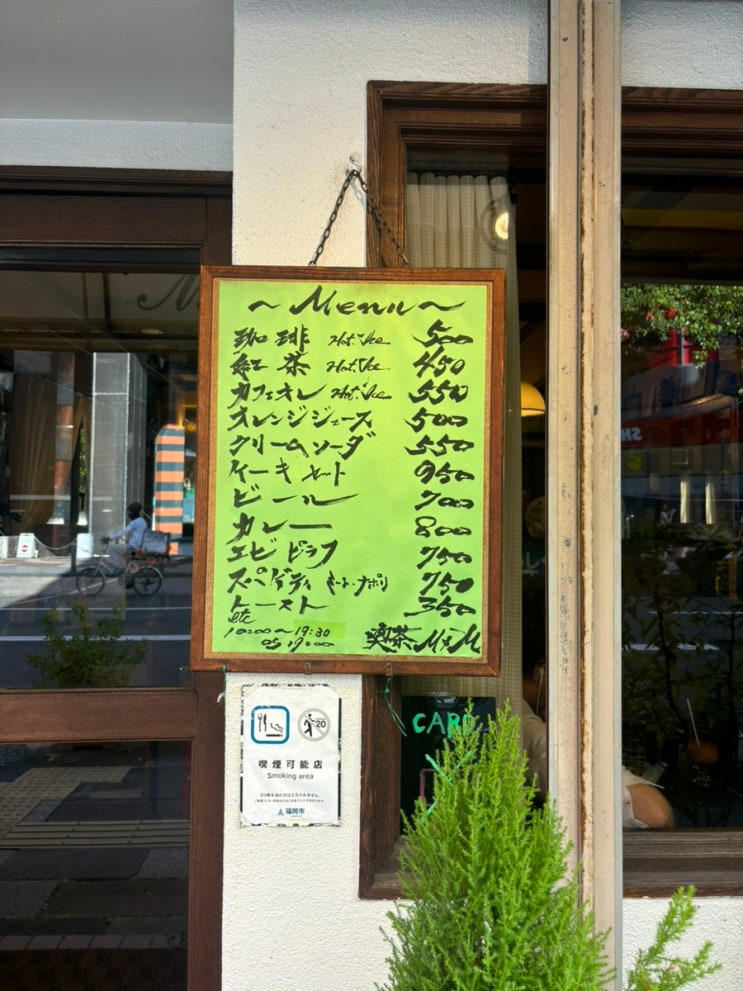 ~ Menu ~
珈琲 Hot・Ice 500
紅茶 Hot・Ice 450
カフェオレ Hot・Ice 550
オレンジジュース 500
クリームソーダ 550
ケーキセット 950
ビール 700
カレー 800
エビピラフ 750
スペゲティ ミート・ナポリ 750
トースト 350
etc
10:00~19:30
OS 19:00
喫茶 M&M
20
喫煙可能店
Smoking area
20歳未満の方は立ち入れません。
福岡市
CARD